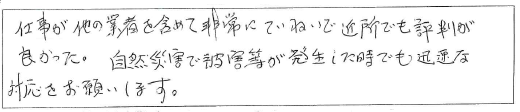 仕事が他の業者を含めて非常にていねいで近所でも評判が
良かった。自然災害で被害等が発生した時でも迅速な
対応をお願いします。